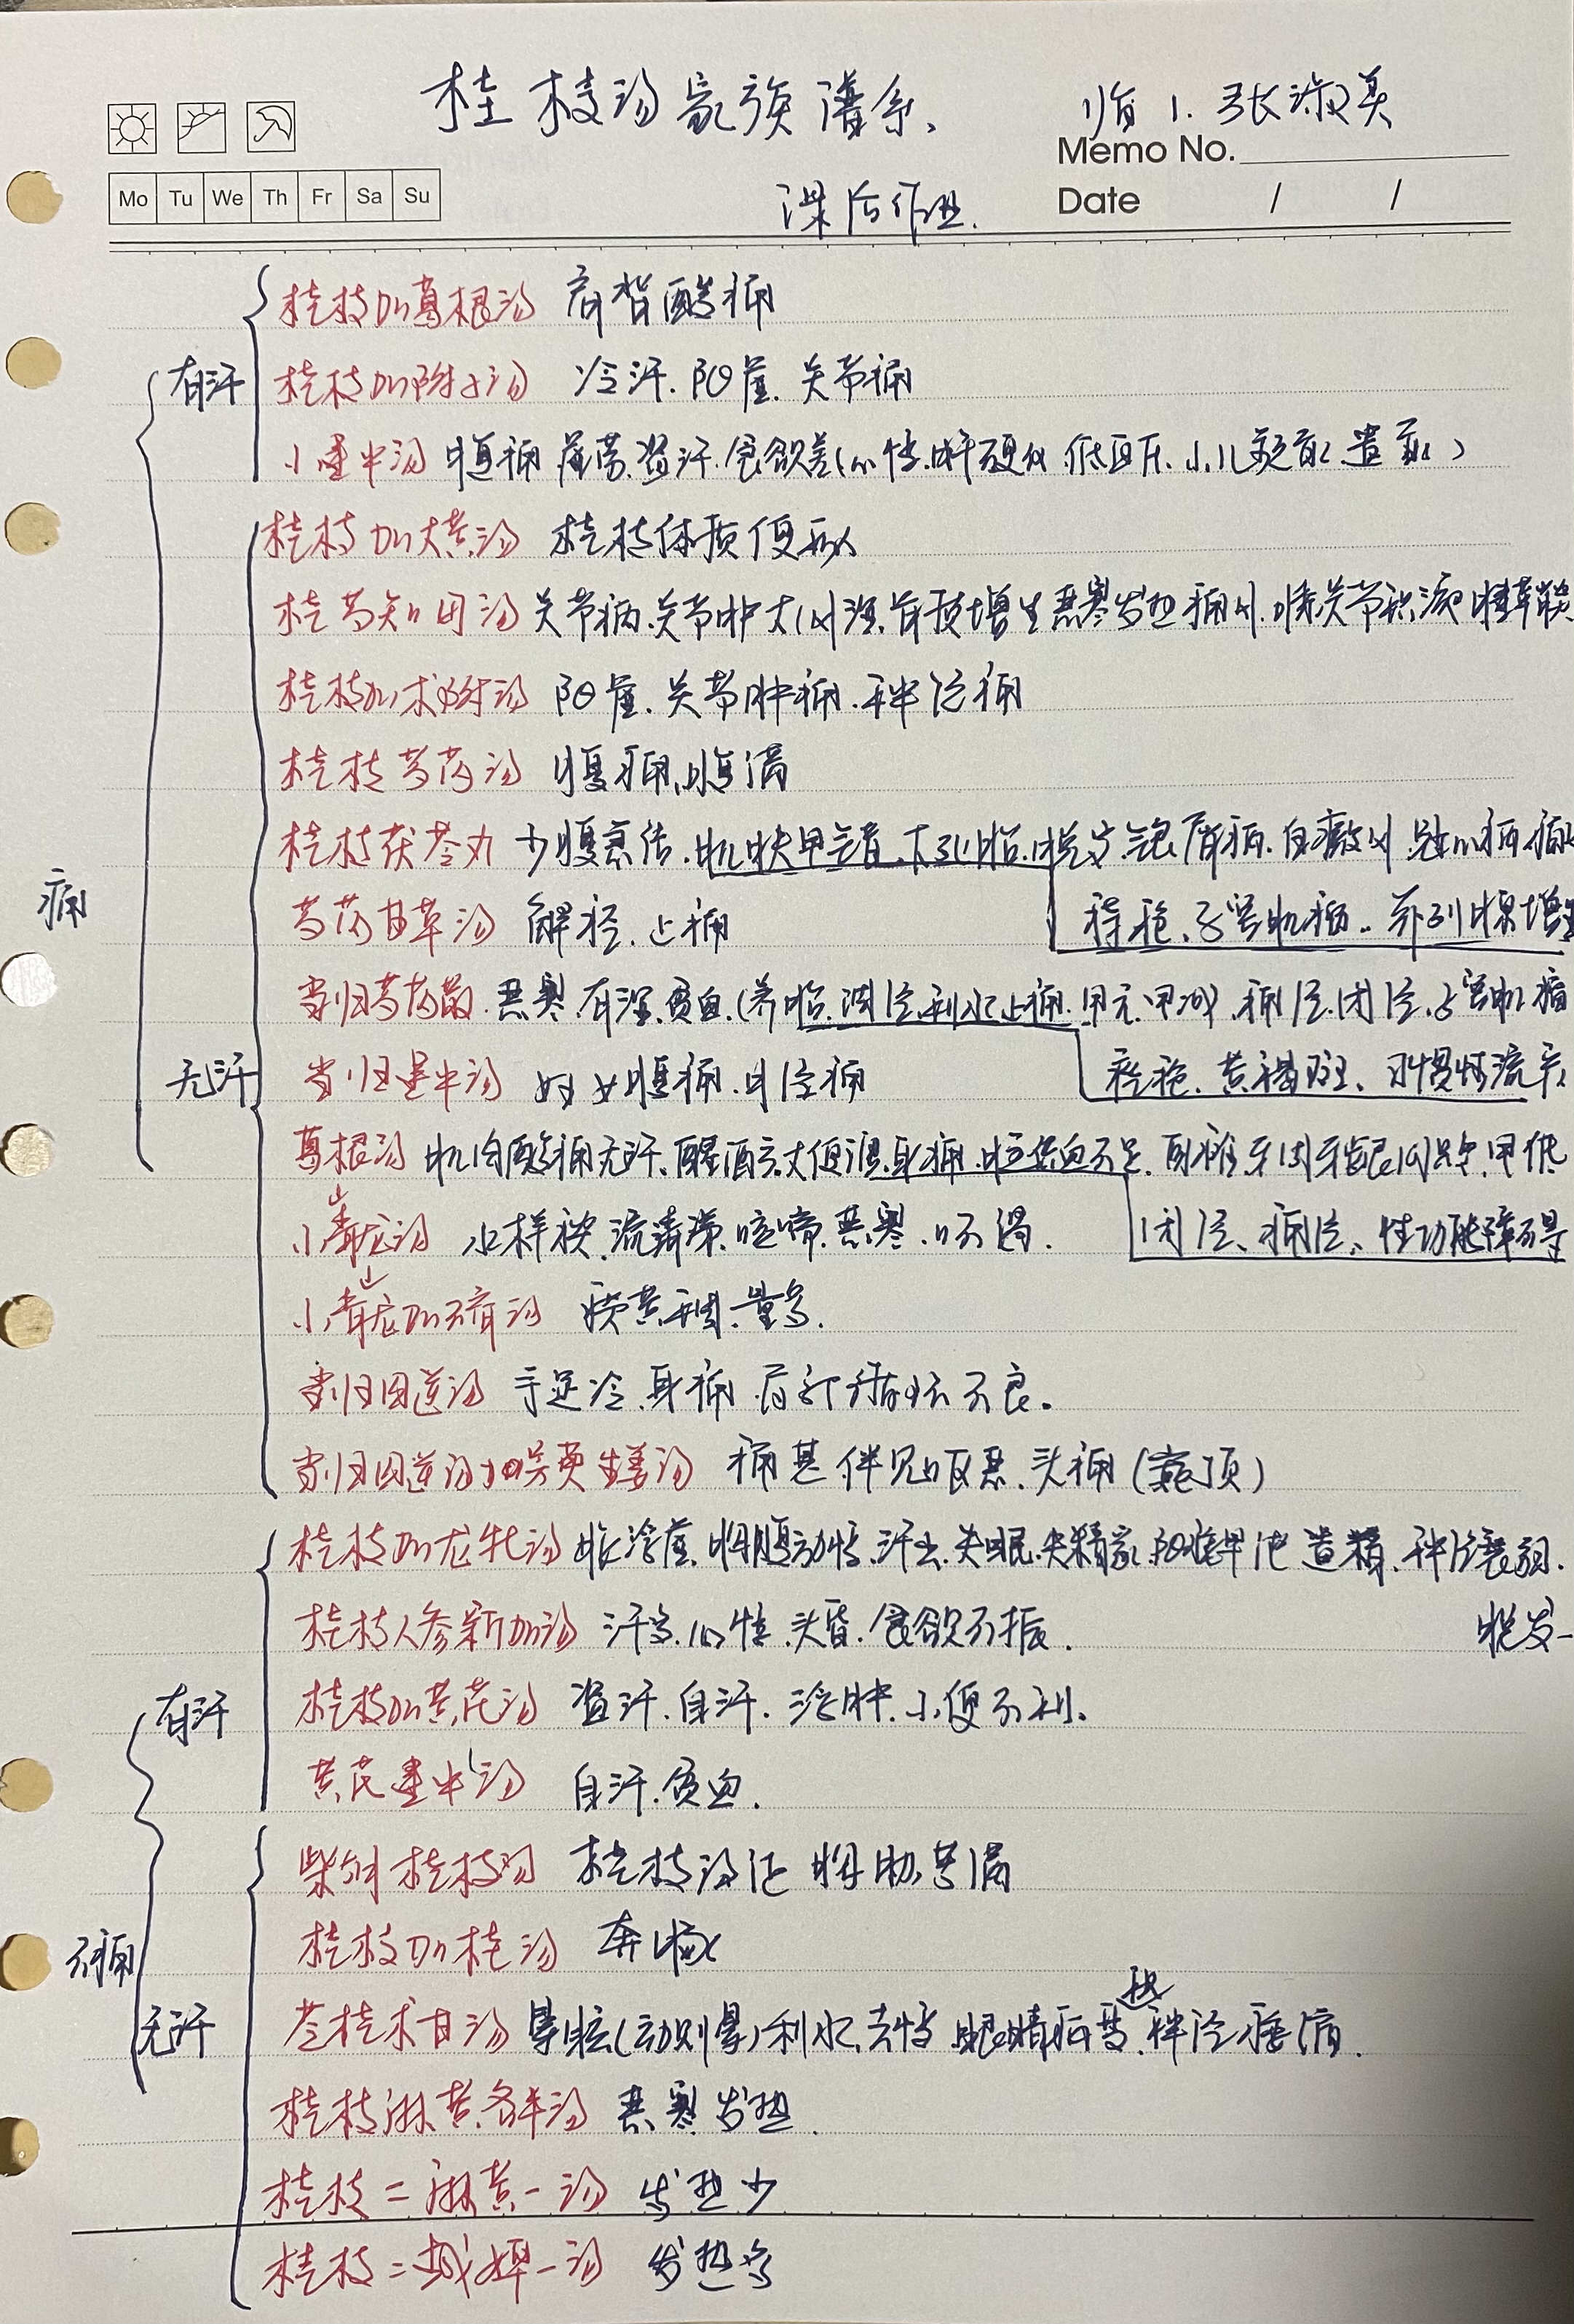 桂枝汤家族谱系、
临1. 张淑英
Memo No.
Mo Tu We Th Fr Sa Su
课后作业.
Date / /
桂枝加葛根汤 肩背酸痛
有汗
桂枝加附子汤 冷汗. 阳虚. 关节痛
小建中汤 腹痛 盗汗. 食欲差(心悸. 肝硬化. 低血压. 小儿
桂枝加大黄汤 桂枝体质便秘
桂芍知母汤 关节痛. 关节肿大 增生 恶寒发热 关节积液
桂枝加术附汤 阳虚. 关节肿痛. 神经痛
桂枝芍药汤 腹痛. 腹满
桂枝茯苓丸 少腹急结. 肌肤甲错 下 脱发
痛
芍药甘草汤 解痉. 止痛
子宫肌瘤. 前列腺增生
当归芍药散. 恶寒. 有湿. 贫血.(养胎. 调经. 利水. 止痛. 甲亢 痛经. 闭经. 子宫肌瘤
无汗
当归建中汤 妇女腹痛. 月经痛
黄褐斑、习惯性流产
葛根汤 肌肉酸痛无汗. 醒酒 大便溏 身痛 甲低
小青龙汤 水样痰. 流清涕. 咳喘. 恶寒. 口不渴.
闭经、痛经、性功能障碍
小青龙加石膏汤 痰黄稠. 量多.
当归四逆汤 手足冷. 身痛. 局部循环不良。
当归四逆汤加吴萸生姜汤 痛甚 伴见呕恶. 头痛(巅顶)
桂枝加龙牡汤 胸腹动悸. 汗出. 失眠. 失精家 遗精. 神经衰弱.
桂枝人参新加汤 汗多. 心悸. 头昏. 食欲不振.
脱发
桂枝加黄芪汤 盗汗. 自汗. 浮肿. 小便不利.
有汗
黄芪建中汤 自汗. 贫血.
柴胡桂枝汤 桂枝汤证 胸胁苦满
桂枝加桂汤 奔豚
不痛
苓桂术甘汤 晕眩(动则晕) 利水. 去悸. 眼睛
无汗
桂枝麻黄各半汤 恶寒发热.
桂枝二麻黄一汤 发热少
桂枝二越婢一汤 发热多